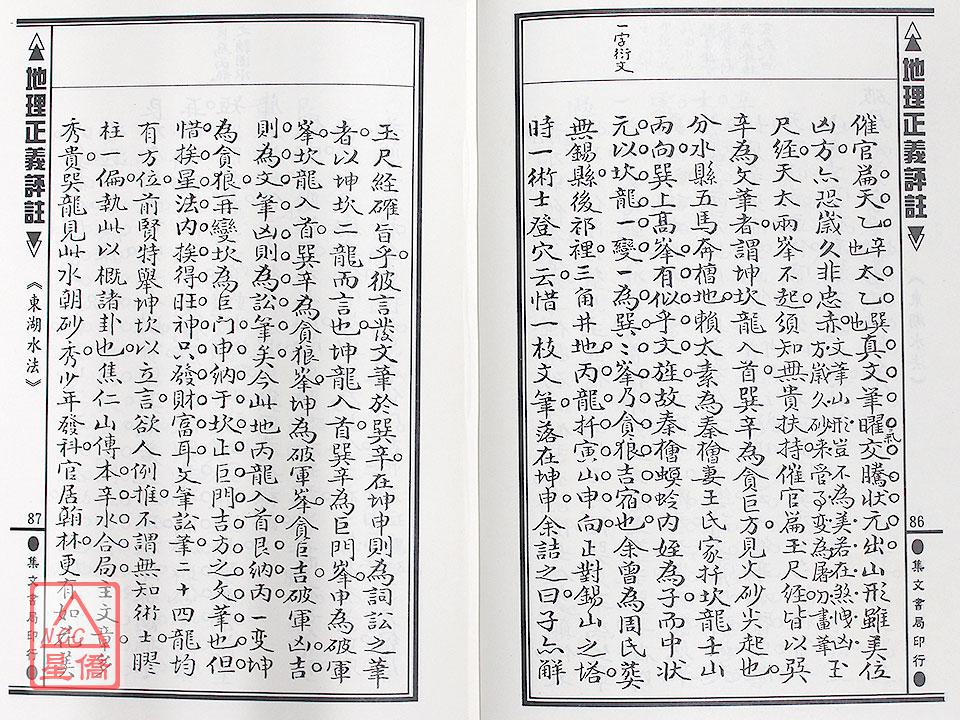 地理正義評註
《東湖水法》
86
集文書局印行
一字衍文
催官篇天乙辛也太乙巽也真文筆曜交騰狀元出山形雖美位
凶方亦恐歲久非忠赤文筆山飛豈不為美若在煞洩凶方歲久砂來受了變為屠刽畫筆玉
尺經天太兩峯不起須知無貴扶持催官篇玉尺經皆以巽
辛為文筆者謂坤坎龍入首巽辛為貪巨方見火砂尖起也
分水縣五馬奔檀地賴太素為秦檜妻王氏家扦坎龍壬山
丙向巽上高峯有似乎文旌故秦檜螟蛉內姪為子而中狀
元以坎龍一變一為巽巽峯乃貪狼吉宿也余曾為周氏葬
無錫縣後祁裡三角井地丙龍扦寅山申向正對錫山之塔
時一術士登穴云惜一枝文筆落在坤申余詰之曰子亦解
玉尺經確旨乎彼言發文筆於巽辛在坤申則為詞訟之筆
者以坤坎二龍而言也坤龍入首巽辛為巨門峯申為破軍
峯坎龍入首巽辛為貪狼峯坤為破軍峯貪巨吉破軍凶吉
則為文筆凶則為訟筆矣今此地丙龍入首艮納丙一變坤
為貪狼再變坎為巨門申納于坎正巨門吉方之文筆也但
惜挨星法內挨得旺神只發財富耳文筆訟筆二十四龍均
有方位前賢特舉坤坎以立言欲人例推不謂無知術士膠
柱一偏執此以概諸卦也焦仁山傳本辛水合局主文章多
秀貴巽龍見此水朝砂秀少年發科官居翰林更有如花美
地理正義評註
《東湖水法》
87
集文書局印行
NCC
星僑